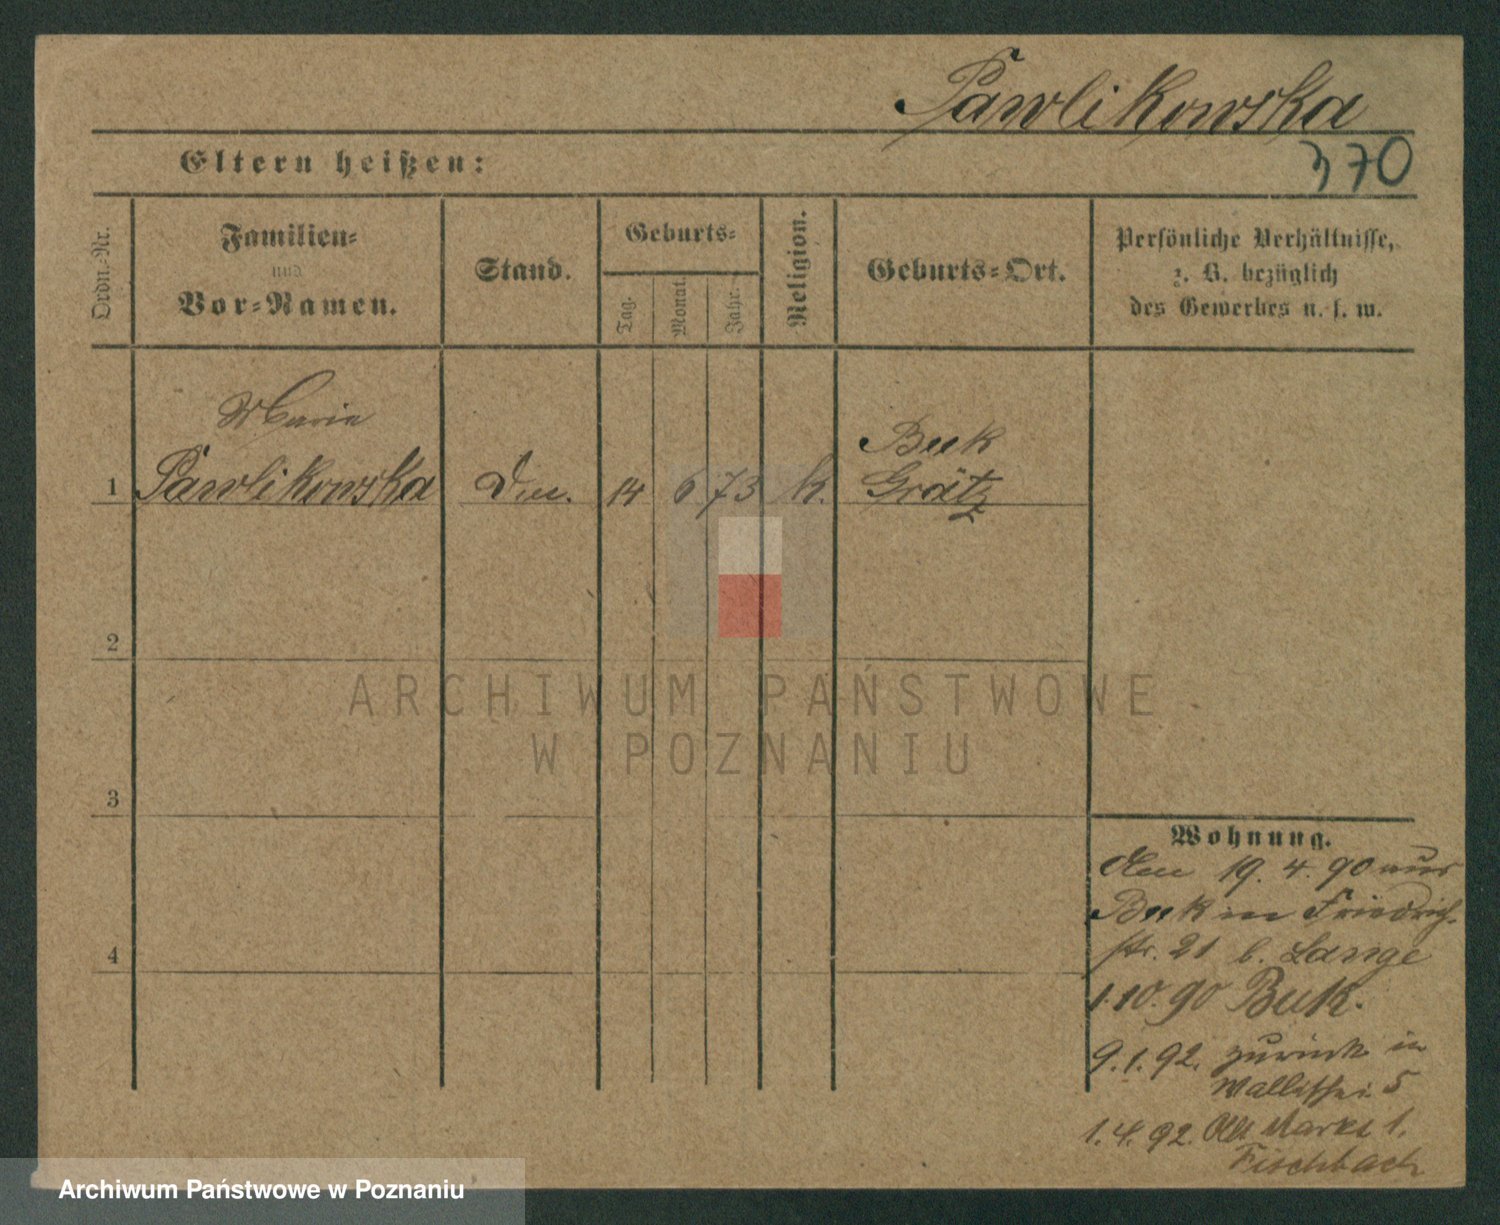 Pawlikowska
Eltern heißen:
370
Ordn.-Nr.
Familien-
und
Vor-Namen.
Stand.
Geburts-
Tag.
Monat.
Jahr.
Religion.
Geburts-Ort.
Persönliche Verhältnisse,
z. B. bezüglich
des Gewerbes u. s. w.
Marie
Buk
1 Pawlikowska 14 6 73 k. Grätz
2
3
4
Wohnung.
den 19. 4. 90 aus
Buk in Friedrich-
str. 21 b. Lange
1.10.90 Buk.
9.1.92. zurück in
Wallischei 5
1.4.92. Alt Markt 1.
Fischbach
ARCHIWUM PAŃSTWOWE
W POZNANIU
Archiwum Państwowe w Poznaniu